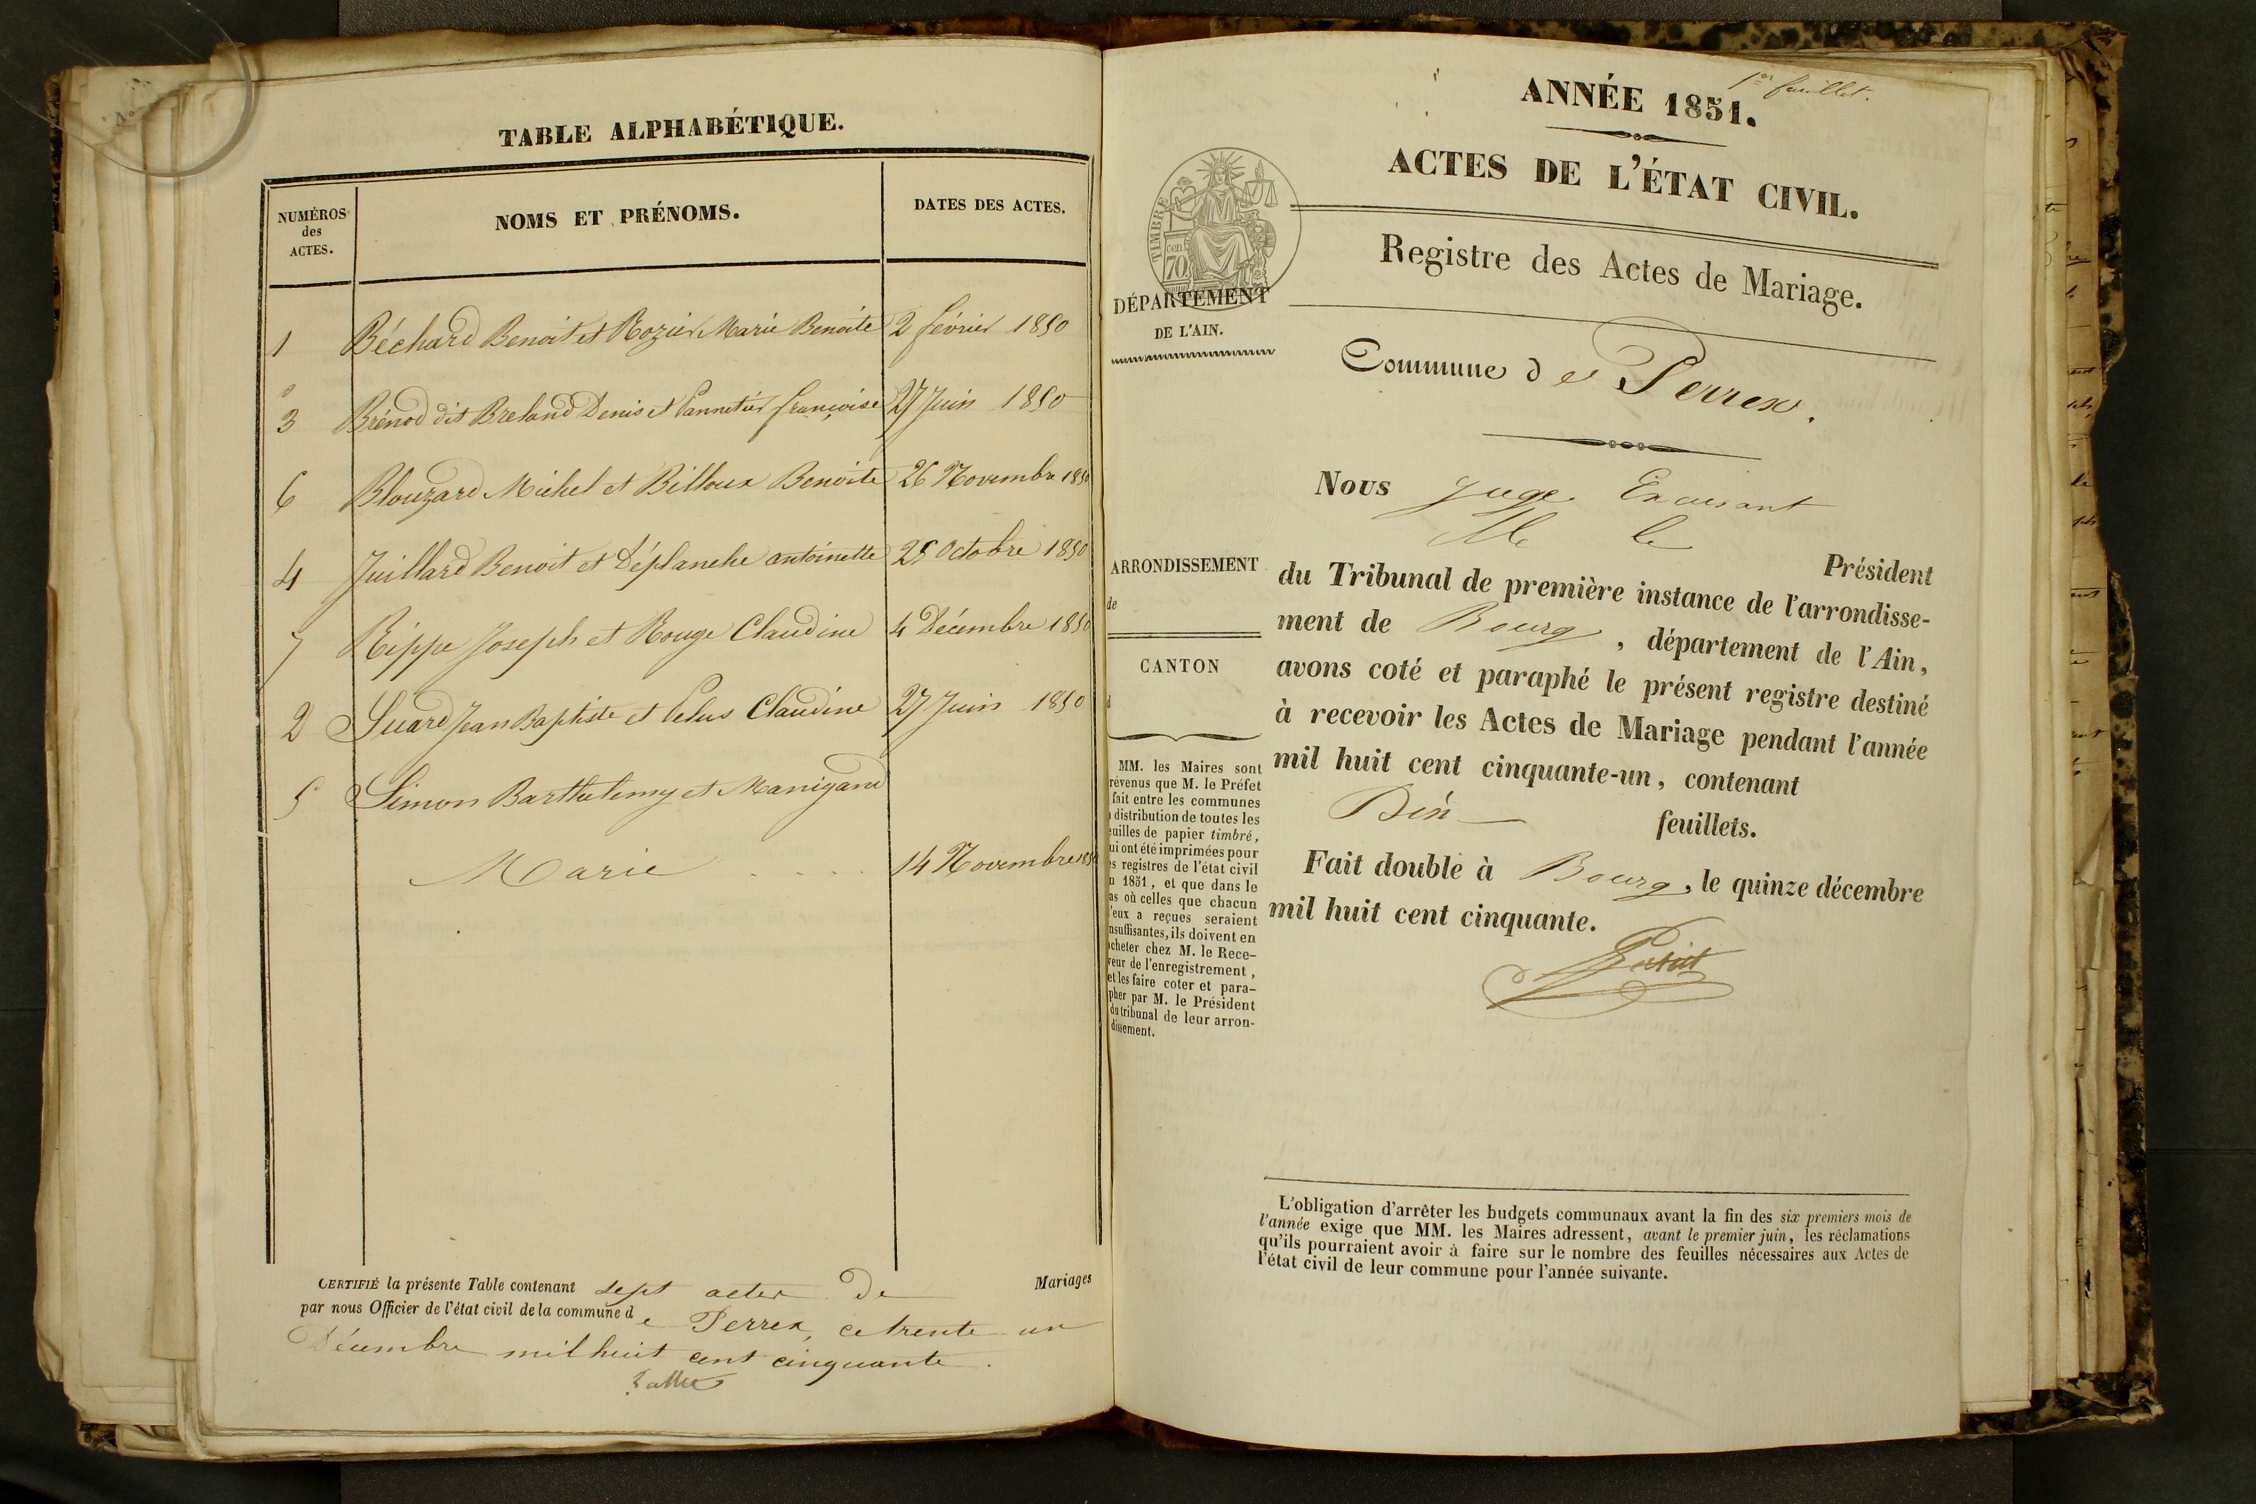 TABLE ALPHABÉTIQUE.
NUMÉROS
des
ACTES.
NOMS ET PRÉNOMS.
DATES DES ACTES.
1 Béchard Benoit et Rozier Marie Benoite 2 février 1850
3 Brénod dit Breland Denis et Pannetier françoise 27 Juin 1850
6 Blouzard Michel et Billoux Benoite 26 Novembre 1850
4 Juillard Benoit et Déplanche antoinette 25 Octobre 1850
7 Rippe Joseph et Rouge Claudine 4 Décembre 1850
2 Suard Jean Baptiste et Velus Claudine 27 Juin 1850
5 Simon Barthelemy et Manigand
Marie . . . . 14 Novembre 1850
CERTIFIÉ la présente Table contenant sept actes de Mariages
par nous Officier de l'état civil de la commune de Perrex, ce trente un
Décembre mil huit cent cinquante.
1er feuillet.
ANNÉE 1851.
ACTES DE L'ÉTAT CIVIL.
Registre des Actes de Mariage.
TIMBRE
70 cen
DÉPARTEMENT
DE L'AIN.
Commune de Perrex.
ARRONDISSEMENT
de
CANTON
d
MM. les Maires sont
révenus que M. le Préfet
fait entre les communes
distribution de toutes les
euilles de papier timbré,
ui ont été imprimées pour
es registres de l'état civil
n 1851, et que dans le
as où celles que chacun
'eux a reçues seraient
nsuffisantes, ils doivent en
acheter chez M. le Rece-
veur de l'enregistrement,
et les faire coter et para-
pher par M. le Président
du tribunal de leur arron-
dissement.
Nous juge Excusant
M. le Président
du Tribunal de première instance de l'arrondisse-
ment de Bourg, département de l'Ain,
avons coté et paraphé le présent registre destiné
à recevoir les Actes de Mariage pendant l'année
mil huit cent cinquante-un, contenant
feuillets.
Fait double à Bourg, le quinze décembre
mil huit cent cinquante.
L'obligation d'arrêter les budgets communaux avant la fin des six premiers mois de
l'année exige que MM. les Maires adressent, avant le premier juin, les réclamations
qu'ils pourraient avoir à faire sur le nombre des feuilles nécessaires aux Actes de
l'état civil de leur commune pour l'année suivante.